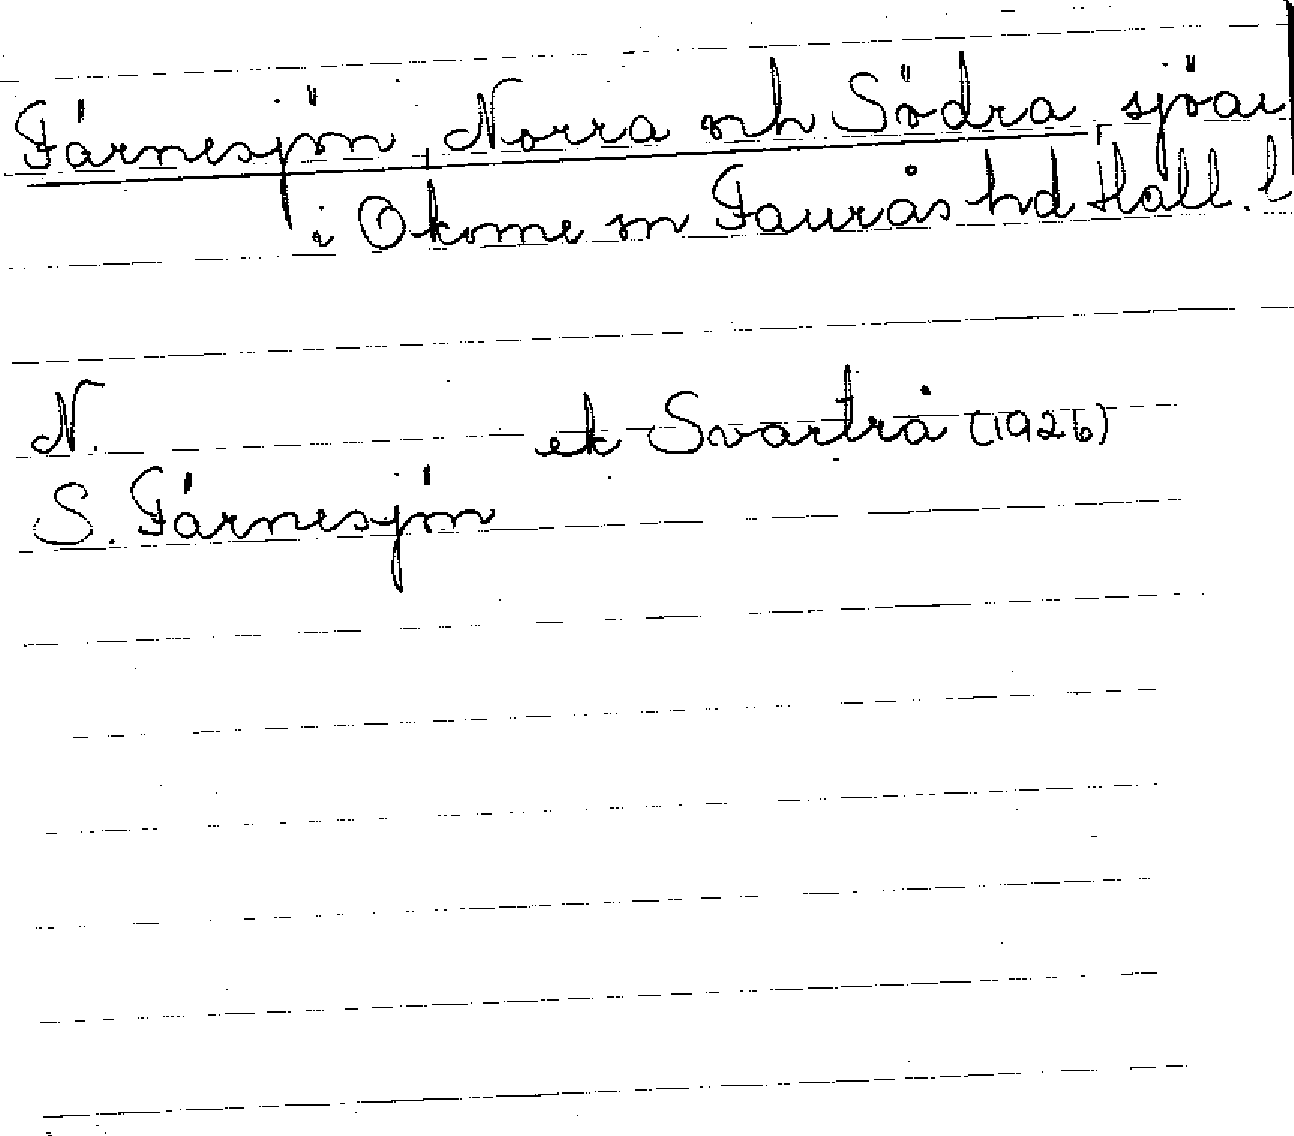 Färnesjön, Norra och Södra, sjöar
i Okome sn Faurås hd Hall. l
N. ek Svartrå (1926)
S. Färnesjön